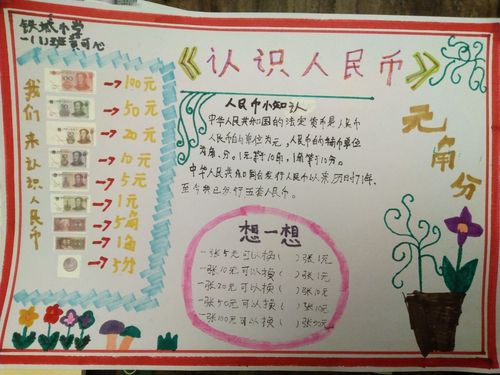 铁城小学
一(1)班 黄可心
《认识人民币》
我们来认识人民币
100元
50元
20元
10元
5元
1元
5角
1角
5分
人民币小知识
中华人民共和国的法定货币是人民币
人民币的单位为元，人民币的辅币单位
为角、分。1元等于10角，1角等于10分。
至今共已发行五套人民币。
元角分
想一想
一张5元可以换（ ）张1元
一张10元可以换（ ）张1元
一张20元可以换（ ）张10元
一张50元可以换（ ）张10元
一张100元可以换（ ）张50元